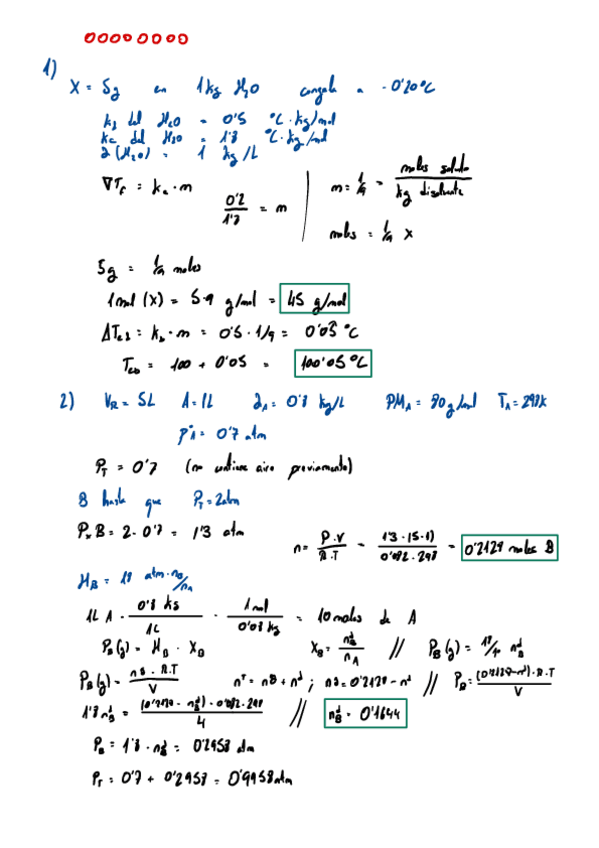 00000000
1)
X = 5g en 1 kg H2O congela a -0'20°C
kb del H2O = 0'5 °C·kg/mol
kc del H2O = 1'8 °C·kg/mol
d(H2O) = 1 kg/L
∇Tf = kc·m
0'2/1'8 = m
m = 1/9 = moles soluto / kg disolvente
moles = 1/9 X
5g = 1/9 moles
1 mol (X) = 5·9 g/mol = 45 g/mol
ΔTeb = kb·m = 0'5·1/9 = 0'05 °C
Teb = 100 + 0'05 = 100'05°C
2) VR = 5L A = 1L dA = 0'8 kg/L PMA = 80g/mol TA = 298K
p°A = 0'7 atm
PT = 0'7 (no contiene aire previamente)
B hasta que PT = 2atm
PxB = 2 - 0'7 = 1'3 atm
n = P·V / R·T = 1'3·(5-1) / 0'082·298 = 0'2128 moles B
HB = 18 atm·nB/nA
1L A · 0'8 kg / 1L · 1 mol / 0'08 kg = 10 moles de A
PB(g) = HB · XB XB = ndB / nA // PB(g) = 18/10 ndB
PB(g) = nB·R·T / V nT = nB + nd ; nB = 0'2128 - nd // PB = (0'2128-nd)·R·T / V
1'8 ndB = (0'2128 - ndB)·0'082·298 / 4 // ndB = 0'1644
PB = 1'8 · ndB = 0'2958 atm
PT = 0'7 + 0'2958 = 0'9958 atm